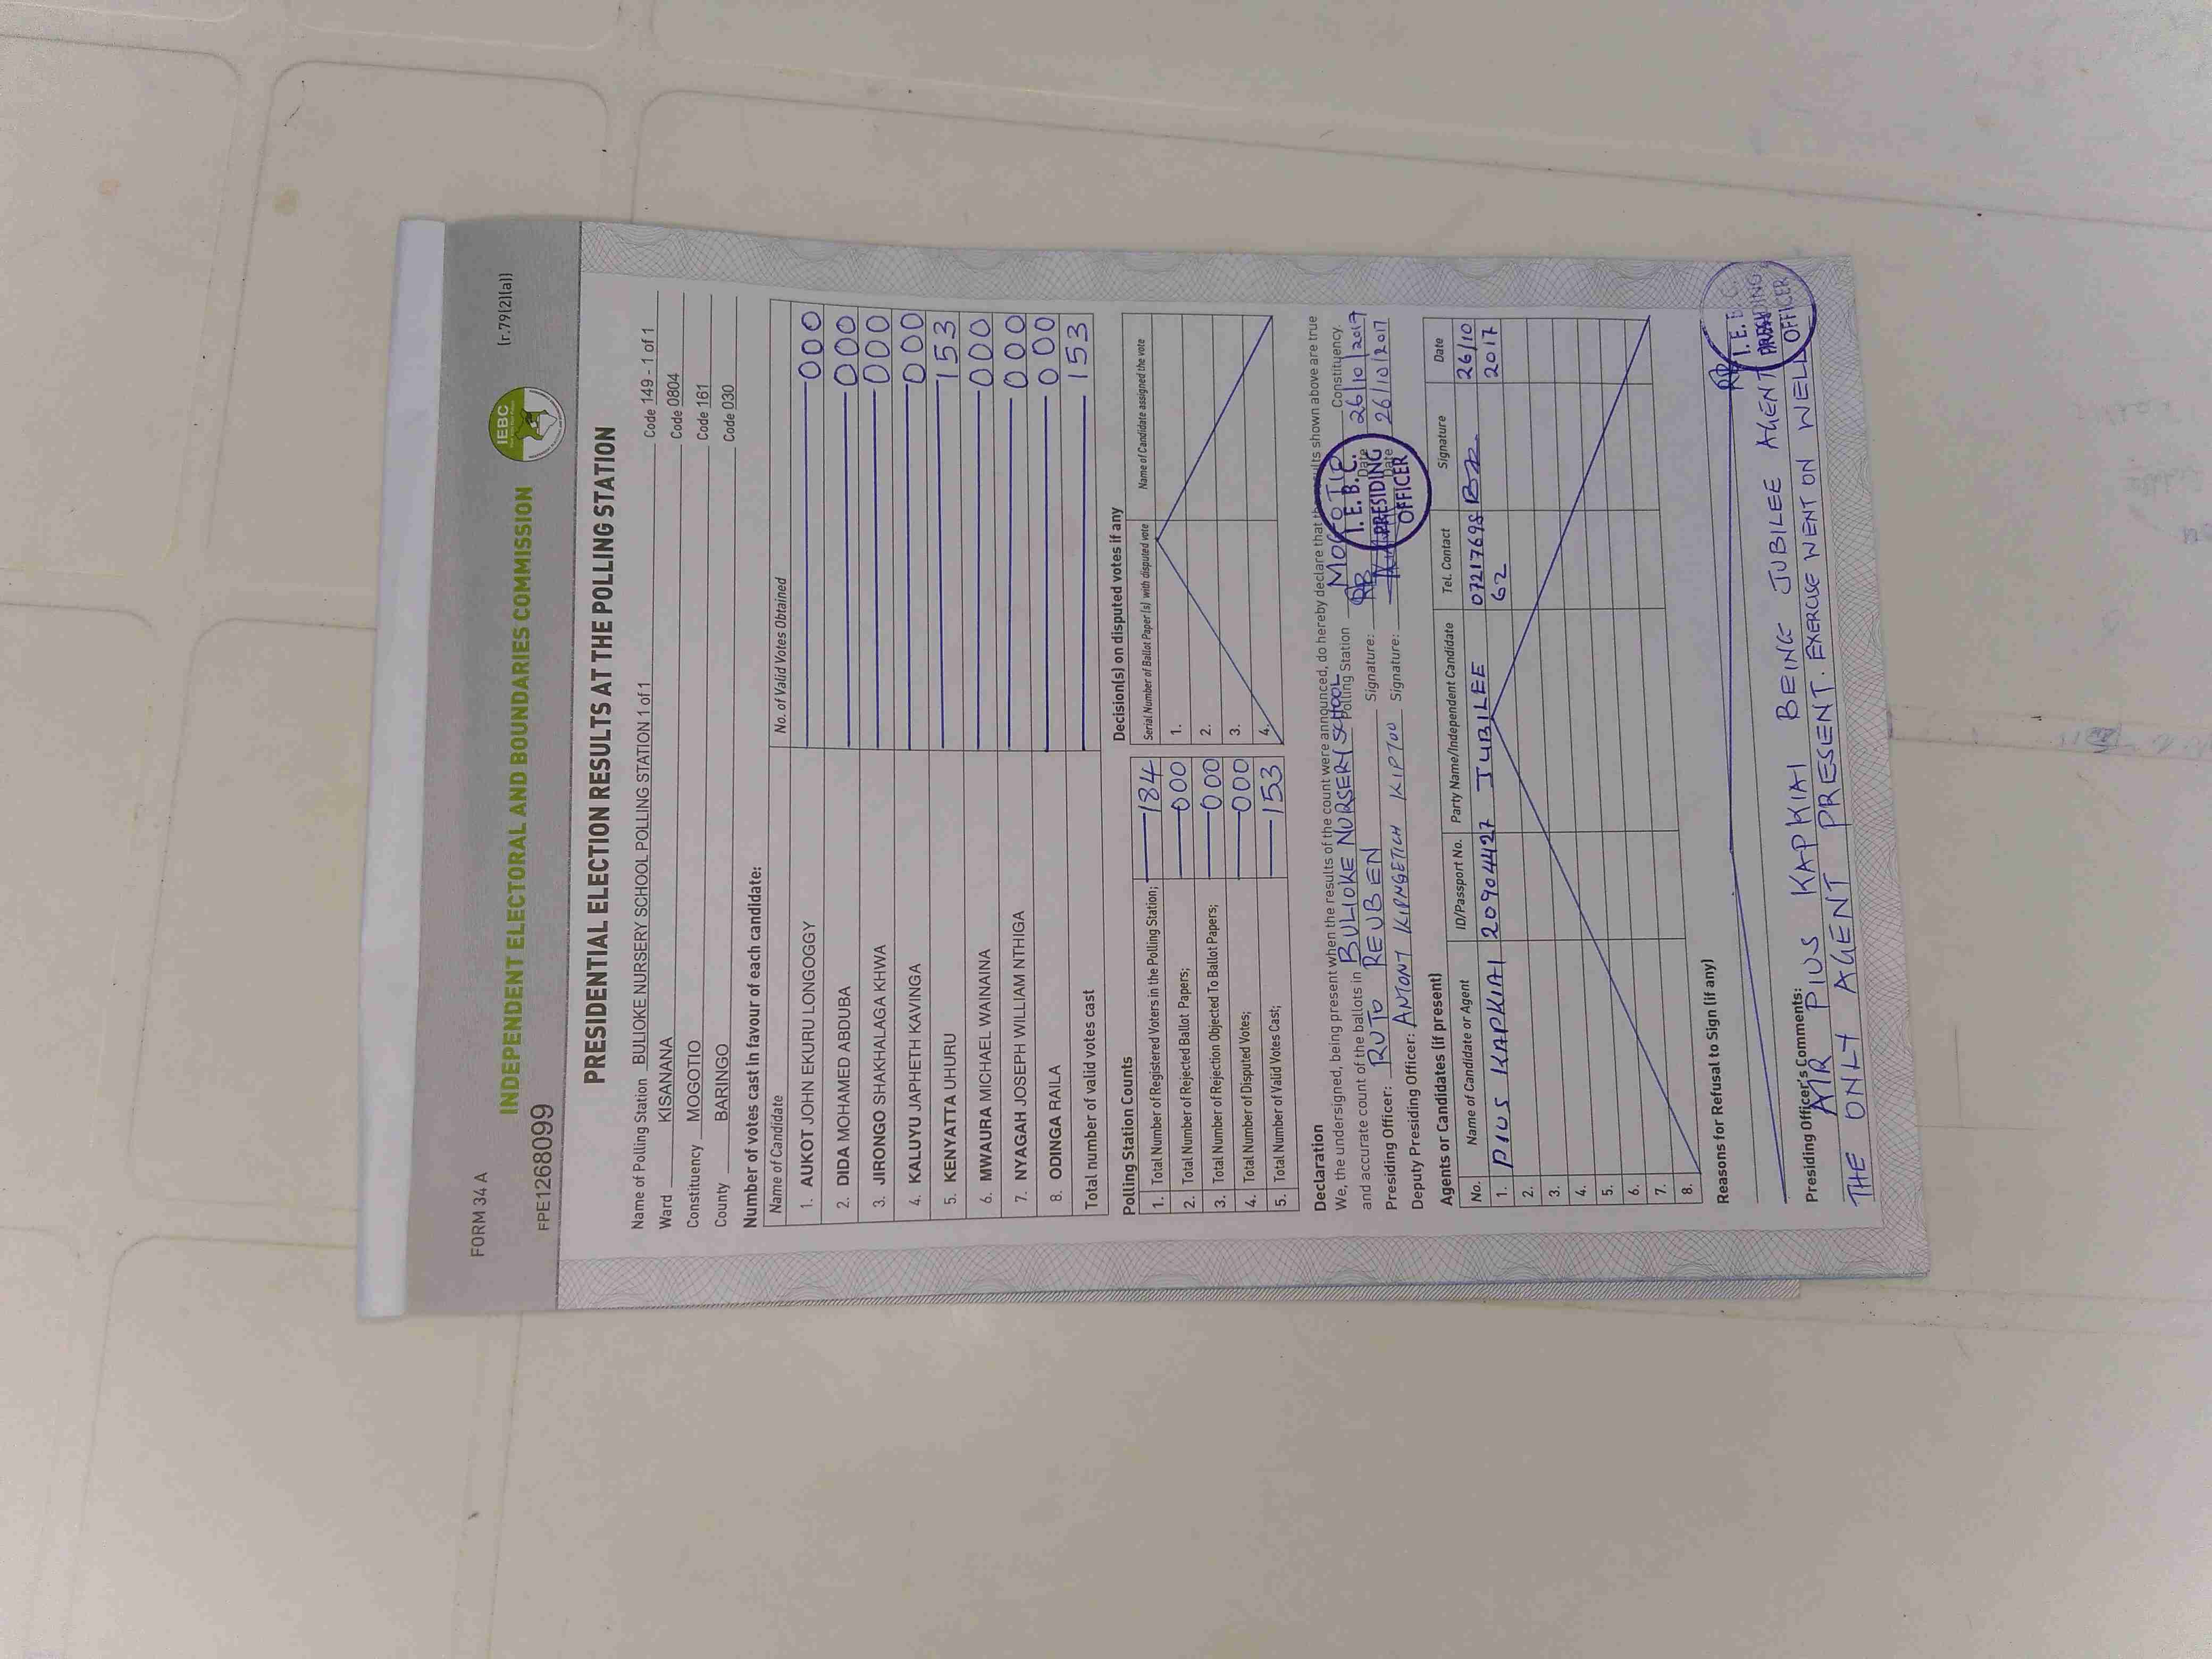 FORM 34 A
(r.79(2)(a))
IEBC
INDEPENDENT ELECTORAL AND BOUNDARIES COMMISSION
FPE1268099
PRESIDENTIAL ELECTION RESULTS AT THE POLLING STATION
Name of Polling Station BULIOKE NURSERY SCHOOL POLLING STATION 1 of 1 Code 149 - 1 of 1
Ward KISANANA Code 0804
Constituency MOGOTIO Code 161
County BARINGO Code 030
Number of votes cast in favour of each candidate:
Name of Candidate No. of Valid Votes Obtained
1. AUKOT JOHN EKURU LONGOGGY 000
2. DIDA MOHAMED ABDUBA 000
3. JIRONGO SHAKHALAGA KHWA 000
4. KALUYU JAPHETH KAVINGA 000
5. KENYATTA UHURU 153
6. MWAURA MICHAEL WAINAINA 000
7. NYAGAH JOSEPH WILLIAM NTHIGA 000
8. ODINGA RAILA 000
Total number of valid votes cast 153
Polling Station Counts
1. Total Number of Registered Voters in the Polling Station; 184
2. Total Number of Rejected Ballot Papers; 000
3. Total Number of Rejection Objected To Ballot Papers; 000
4. Total Number of Disputed Votes; 000
5. Total Number of Valid Votes Cast; 153
Decision(s) on disputed votes if any
Serial Number of Ballot Paper(s) with disputed vote Name of Candidate assigned the vote
1.
2.
3.
4.
Declaration
We, the undersigned, being present when the results of the count were announced, do hereby declare that the results shown above are true
and accurate count of the ballots in BULIOKE NURSERY SCHOOL Polling Station MOGOTIO Constituency.
Presiding Officer: RUTO REUBEN Signature: Date 26/10/2017
Deputy Presiding Officer: ANTONY KIPNGETICH KIPTOO Signature: Date 26/10/2017
I.E.B.C.
PRESIDING
OFFICER
Agents or Candidates (if present)
No. Name of Candidate or Agent ID/Passport No. Party Name/Independent Candidate Tel. Contact Signature Date
1. PIUS KAPKIAI 20904427 JUBILEE 0721769862 26/10 2017
2.
3.
4.
5.
6.
7.
8.
Reasons for Refusal to Sign (if any)
I.E.B.C.
PRESIDING
OFFICER
Presiding Officer's Comments:
MR PIUS KAPKIAI BEING JUBILEE AGENT
THE ONLY AGENT PRESENT. EXERCISE WENT ON WELL